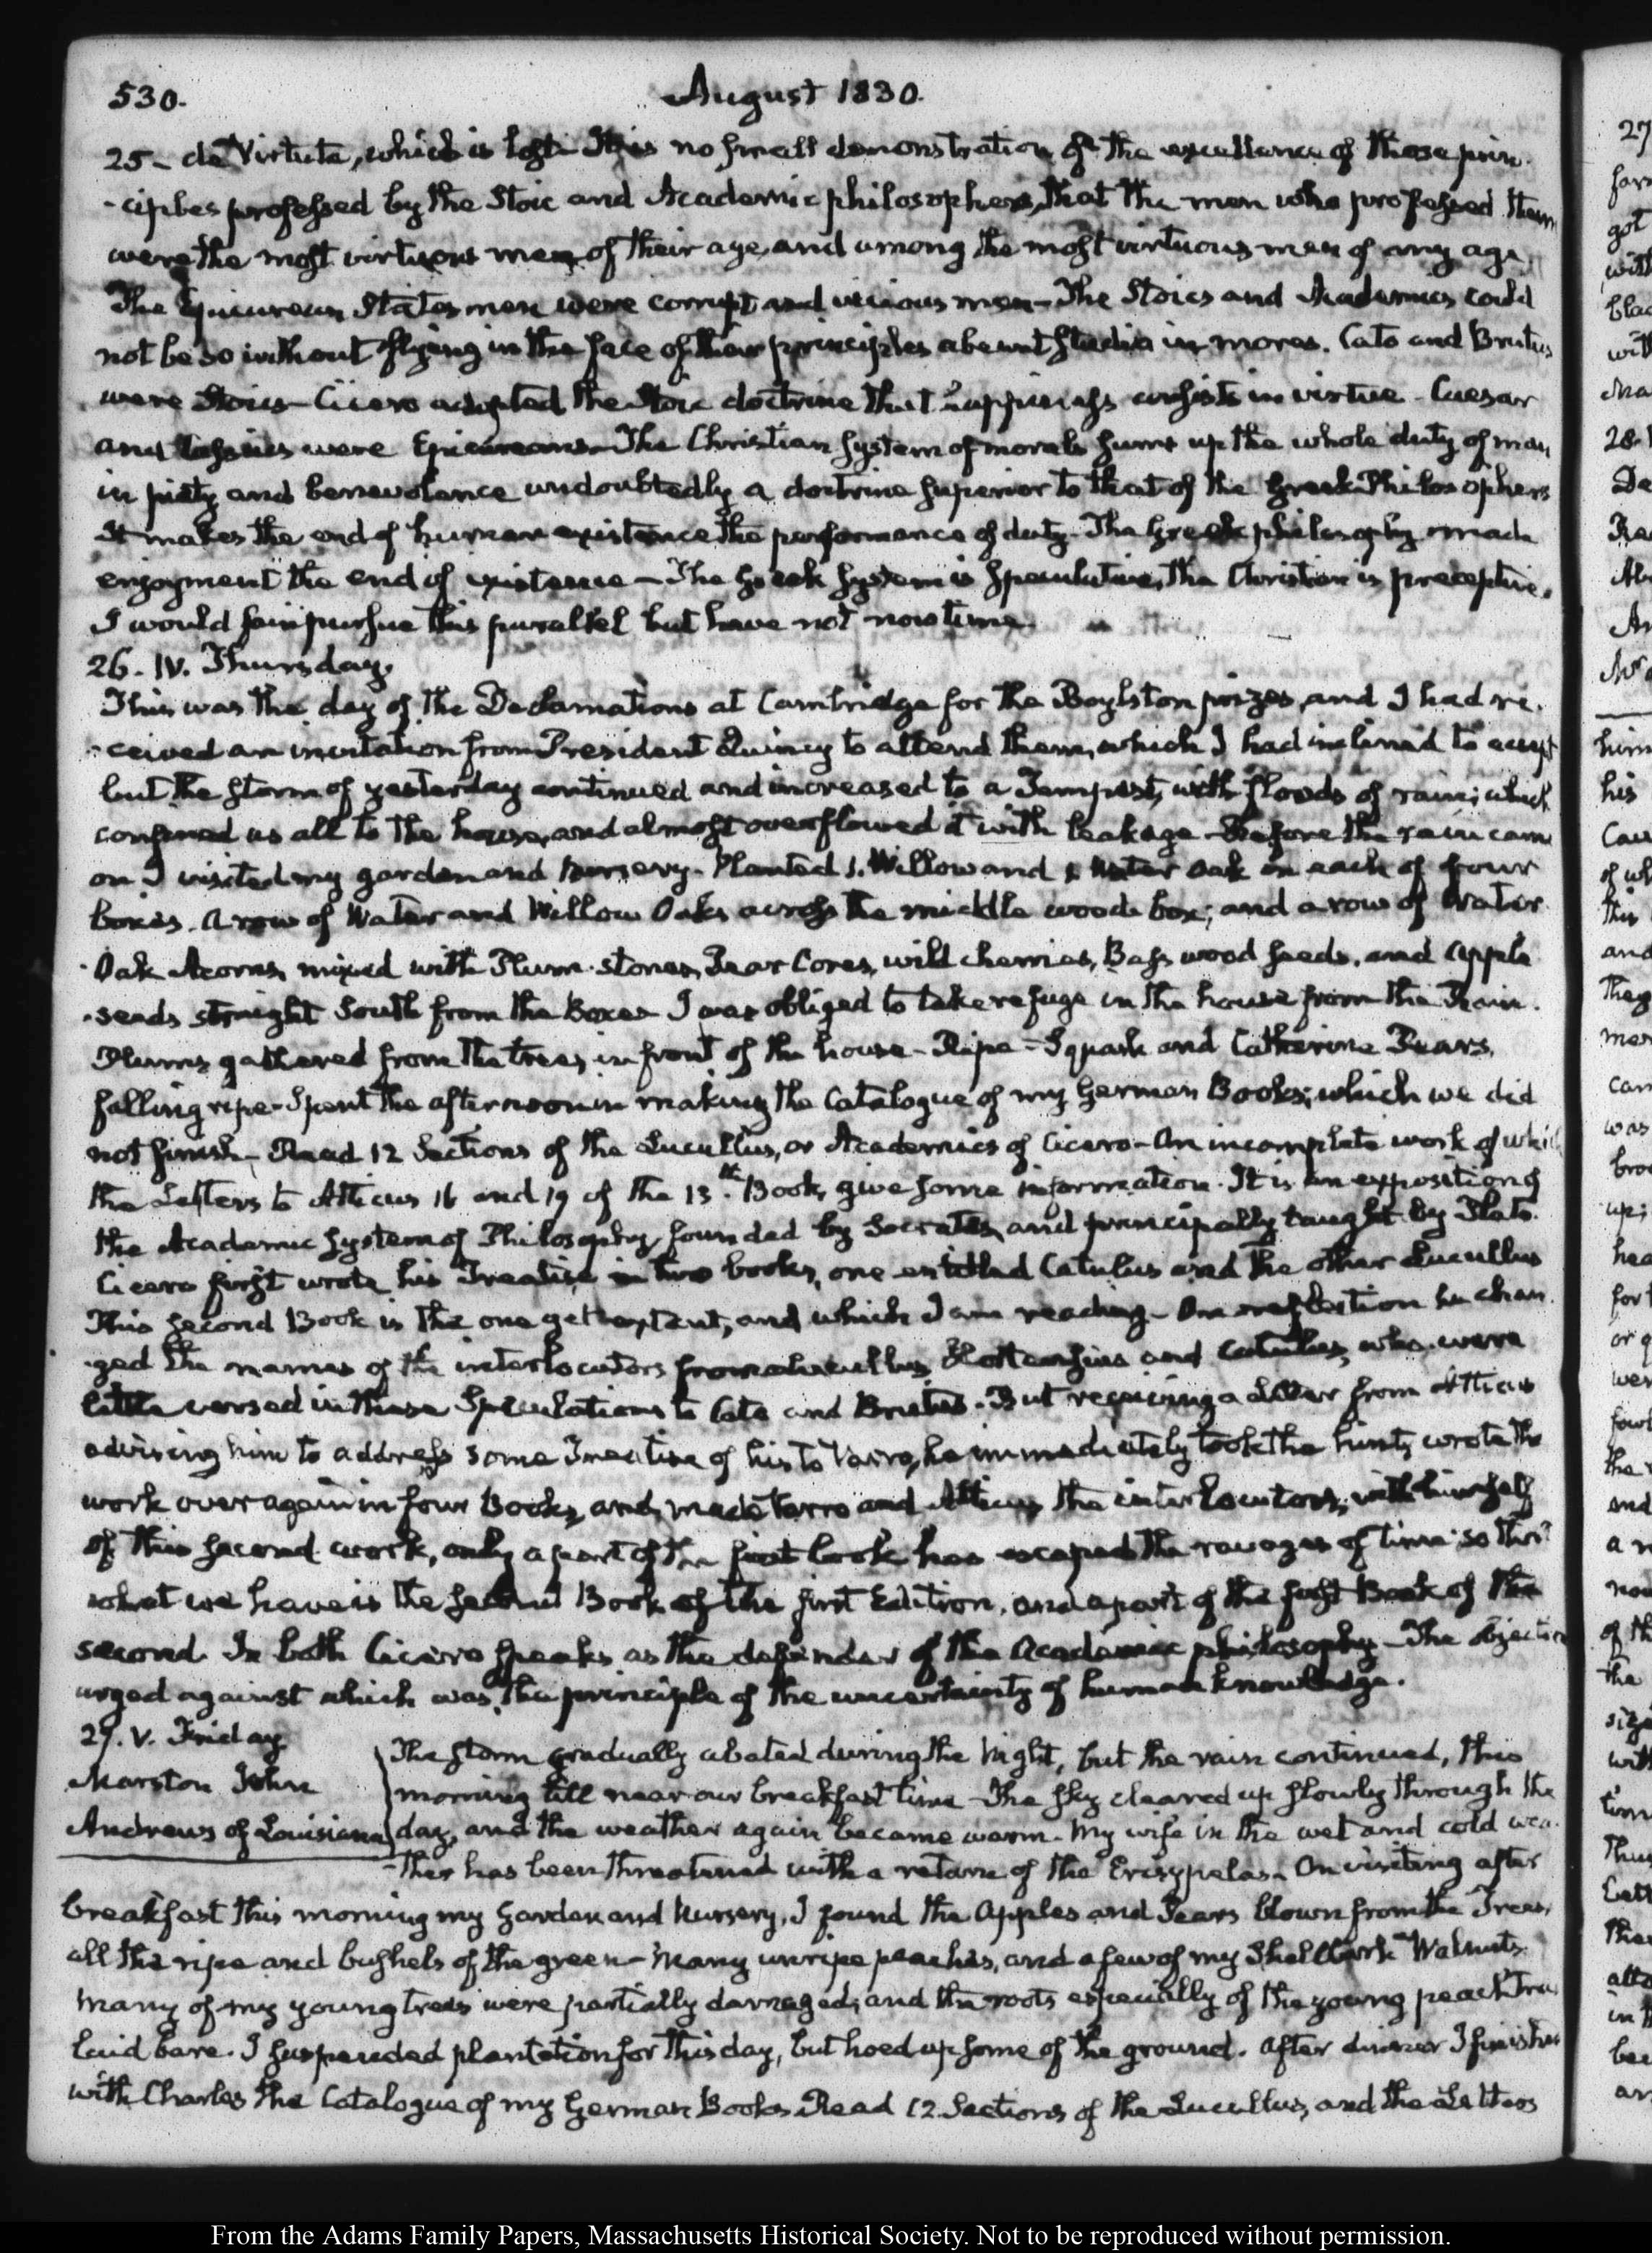 530.
August 1830.
25 – de Virtute, which is lost. It is no small demonstration of the excellence of those prin-
-ciples professed by the Stoic and Academic philosophers, that the men who professed them
were the most virtuous men of their age, and among the most virtuous men of any age.
The Epicurean Statesmen were corrupt and vicious men – The Stoics and Academics could
not be so without flying in the face of their principles abeunt studia in mores. Cato and Brutus
were Stoics – Cicero adopted the Stoic doctrine that happiness consists in virtue – Caesar
and Cassius were Epicureans – The Christian system of morals sums up the whole duty of man
in piety and benevolence undoubtedly a doctrine superior to that of the Greek Philosophers
It makes the end of human existence the performance of duty – The Greek philosophy made
enjoyment the end of existence – The Greek system is speculative, the Christian is preceptive.
I would fain pursue this parallel but have not now time.
26. IV. Thursday.
This was the day of the Declamations at Cambridge for the Boylston prizes, and I had re-
-ceived an invitation from President Quincy to attend them, which I had inclined to accept
but the storm of yesterday continued and increased to a Tempest, with floods of rain; which
confined us all to the house, and almost overflowed it with leakage – Before the rain came
on I visited my garden and nursery – Planted 1. Willow and 1 Water Oak in each of four
boxes. A row of Water and Willow Oaks across the middle wood box; and a row of Water
Oak Acorns, mixed with Plum-stones, Pear Cores, wild cherries, Bass wood seeds, and apple
-seeds straight South from the Boxes – I was obliged to take refuge in the house from the Rain.
Plums gathered from the trees in front of the house – Ripe – Squash and Catherine Pears,
falling ripe – Spent the afternoon in making the Catalogue of my German Books; which we did
not finish – Read 12 Sections of the Lucullus, or Academics of Cicero – An incomplete work of which
the Letters to Atticus 16 and 19 of the 13.th Book, give some information. It is an exposition of
the Academic system of Philosophy, founded by Socrates, and principally taught by Plato.
Cicero first wrote his Treatise in two books, one entitled Catulus and the other Lucullus
This second Book is the one yet extant, and which I am reading – On reflection he chan-
-ged the names of the interlocutors from Lucullus, Hortensius and Catulus, who were
little versed in these Speculations to Cato and Brutus. But receiving a Letter from Atticus
advising him to address some Treatise of his to Varro, he immediately took the hint, wrote the
work over again in four Books, and made Varro and Atticus the interlocutors, with himself
of this second work, only a part of the first book has escaped the ravages of time so that
what we have is the second Book of the first Edition, and a part of the first Book of the
second. In both Cicero speaks as the defender of the Academic philosophy – The objection
urged against which was, the principle of the uncertainty of human knowledge.
27. V. Friday
Marston John
Andrews of Louisiana
The storm gradually abated during the Night, but the rain continued, this
morning till near our breakfast time – The sky cleared up slowly through the
day, and the weather again became warm. My wife in the wet and cold wea-
-ther has been threatened with a return of the Erisypelas – On visiting after
breakfast this morning my Garden and Nursery, I found the Apples and Pears blown from the Trees,
all the ripe and bushels of the green – Many unripe peaches, and a few of my Shellbark Walnuts.
Many of my young trees were partially damaged, and the roots especially of the young peach Trees
laid bare. I suspended plantation for this day, but hoed up some of the ground. After dinner I finished
with Charles the Catalogue of my German Books – Read 12 Sections of the Lucullus, and the Letters
From the Adams Family Papers, Massachusetts Historical Society. Not to be reproduced without permission.